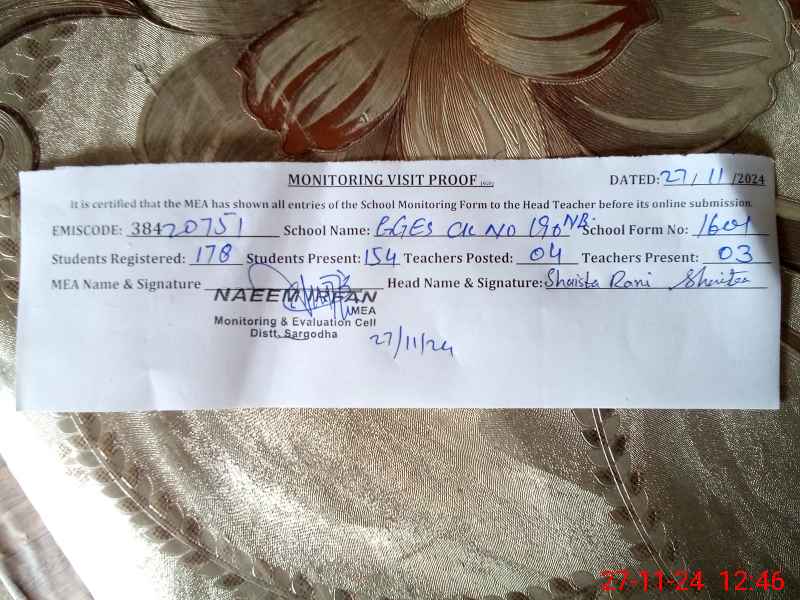 MONITORING VISIT PROOF DATED: 27/11/2024
It is certified that the MEA has shown all entries of the School Monitoring Form to the Head Teacher before its online submission.
EMISCODE: 38420751 School Name: GGES Ck NO 190 NB. School Form No: 1601
Students Registered: 178 Students Present: 154 Teachers Posted: 04 Teachers Present: 03
MEA Name & Signature Head Name & Signature: Shaista Rani Shaista
NAEEM IRFAN
MEA
Monitoring & Evaluation Cell
Distt. Sargodha
27/11/24
27-11-24 12:46